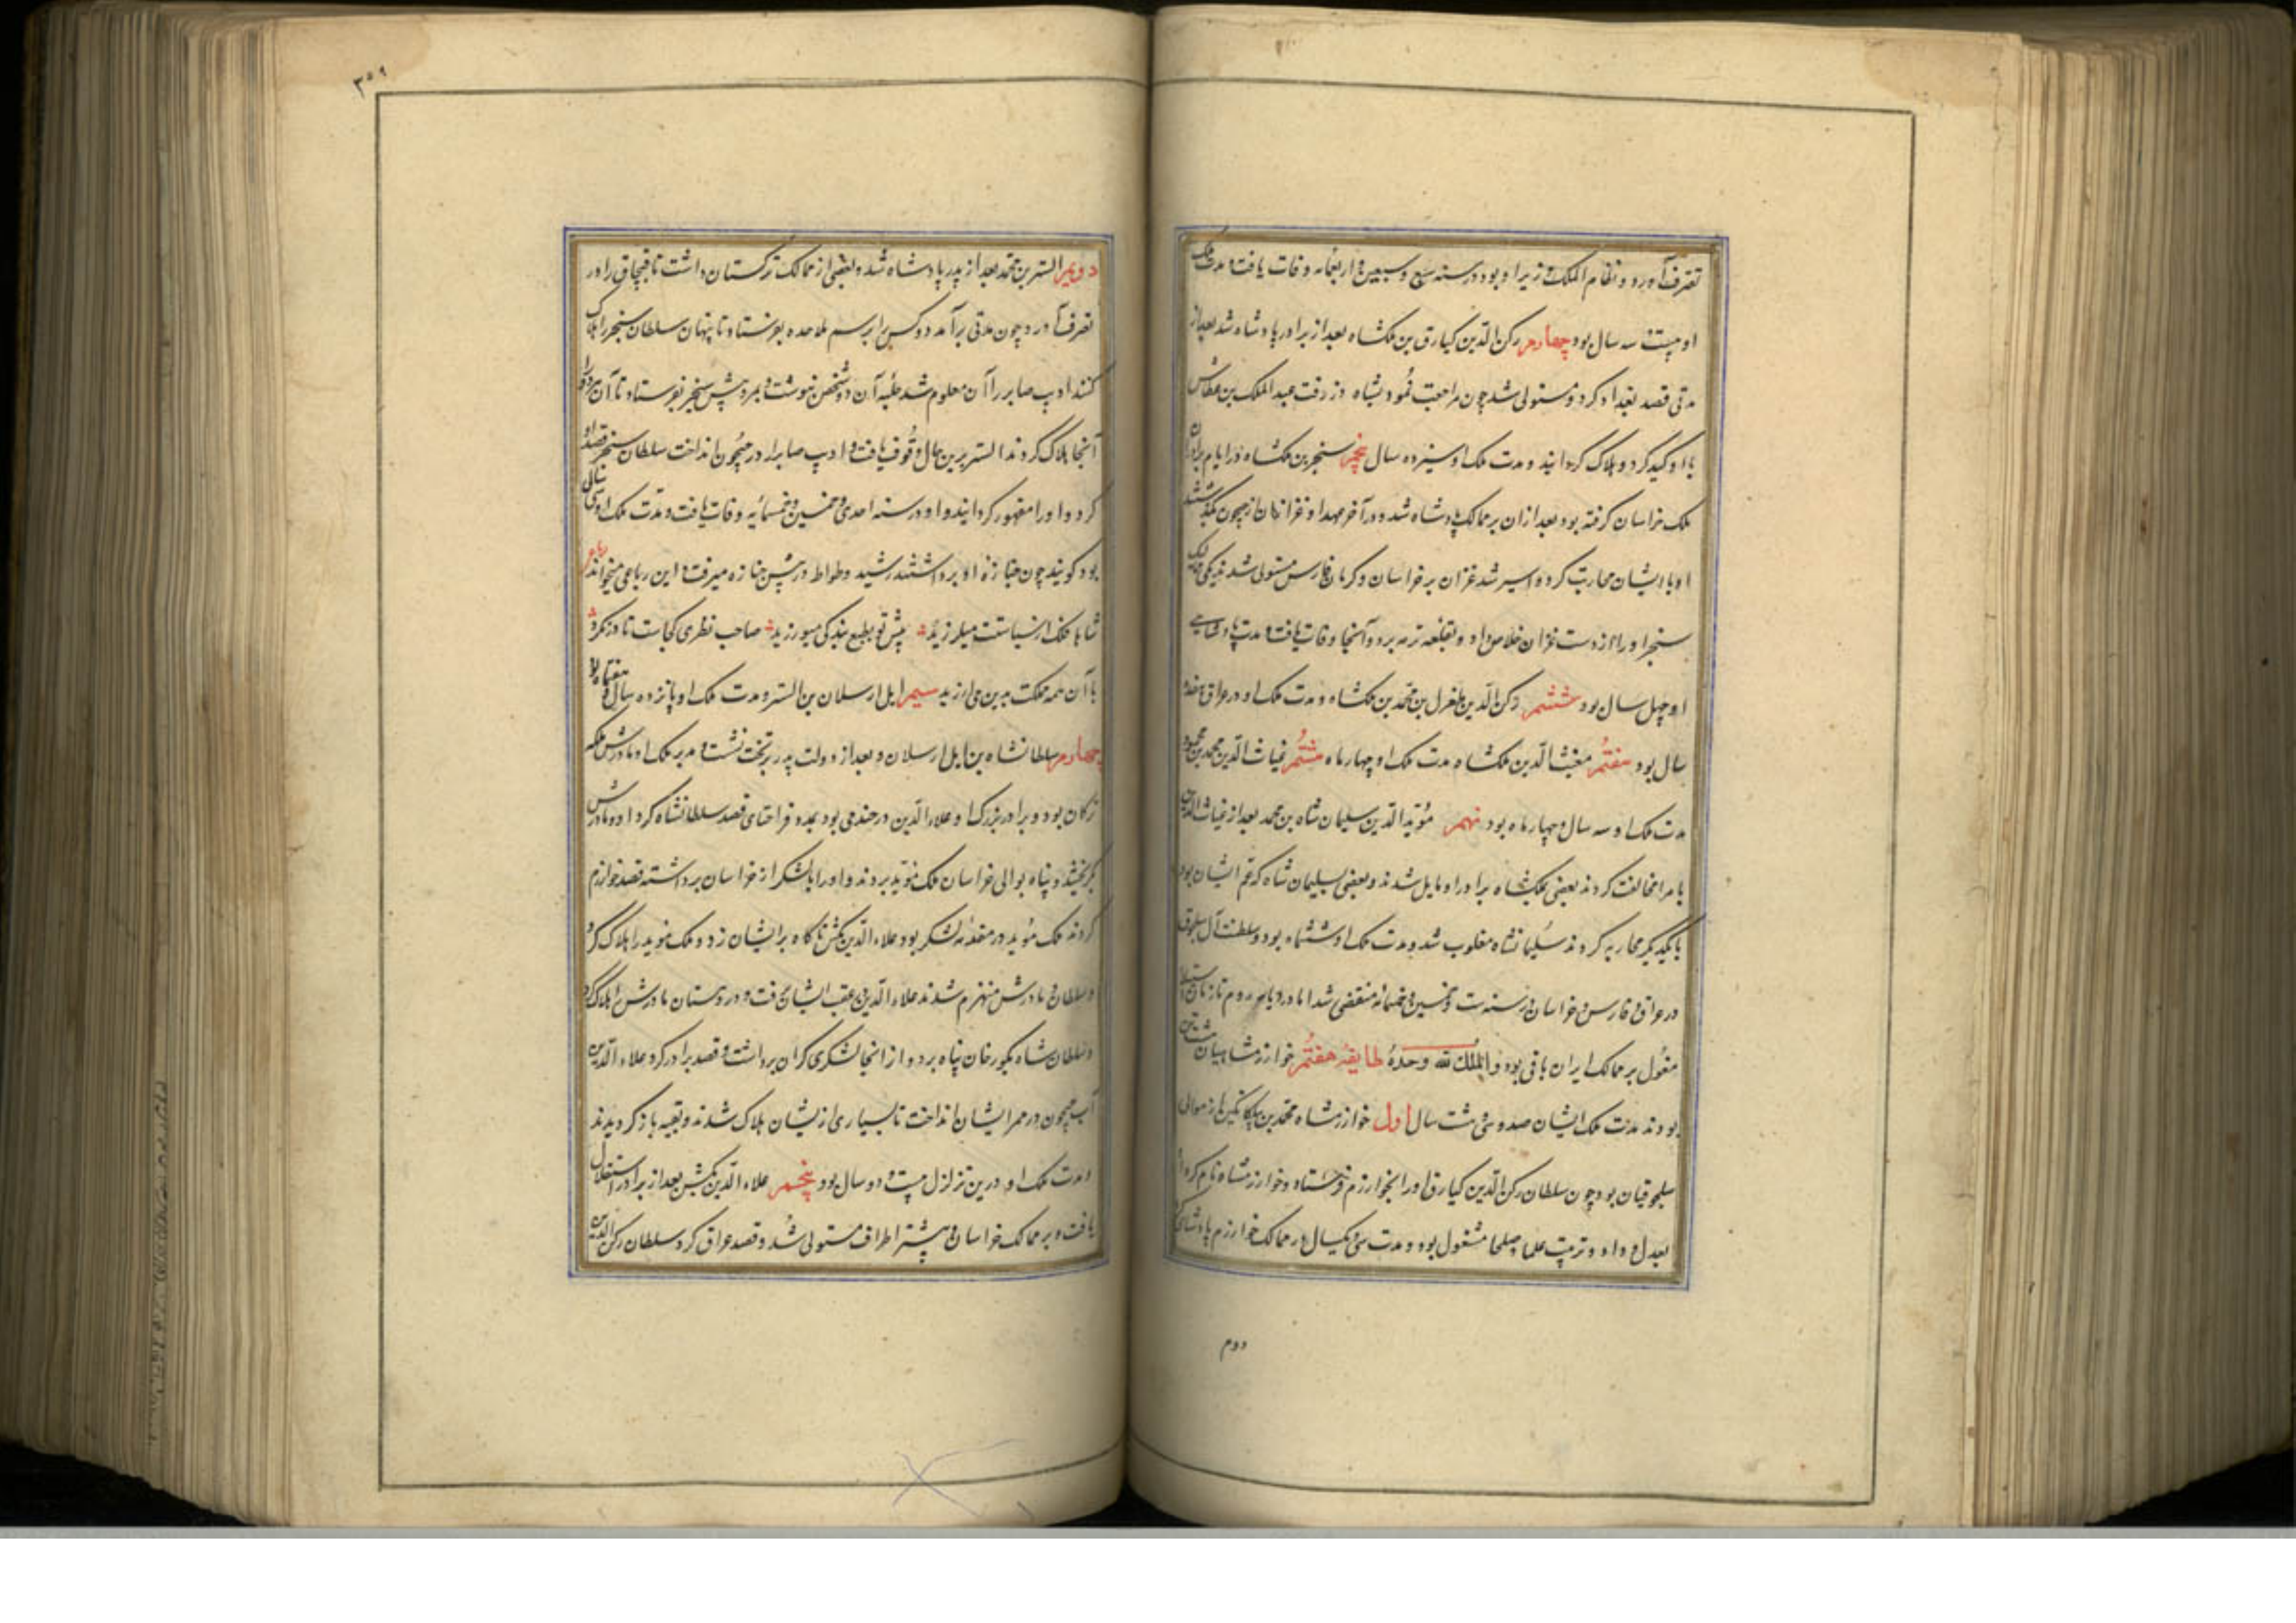 تصرف آورد و نظام الملک وزیر او بود در سنه سبع و سبعین و اربعمائه وفات یافت و مدت ملک
او بیست سه سال بود چهارم رکن الدین کیارق بن ملکشاه بعد از برادر پادشاه شد بعد از
مدتی قصد بغداد کرد و مستولی شد چون مراجعت نمود بشاه دز رفت عبد الملک بن عطاش
با او کید کرد و هلاک گردانید و مدت ملک او سیزده سال پنجم سنجر بن ملکشاه در ایام برادران
ملک خراسان گرفته بود بعد از ان بر ممالک پادشاه شد و در آخر عهد او غزانیان از جیحون بگذشتند
او با ایشان محاربت کرد و اسیر شد غزان بر خراسان و کرمان و فارس مستولی شد
سنجر او را از دست غزان خلاص داد و بقلعه ترمد برد و آنجا وفات یافت و مدت پادشاهی
او چهل سال بود ششم رکن الدین طغرل بن محمد بن ملکشاه و مدت ملک او در عراق
سال بود هفتم مغیث الدین ملکشاه مدت ملک او چهار ماه هشتم غیاث الدین محمد بن محمود
مدت ملک او سه سال و چهار ماه بود نهم مؤید الدین سلیمان شاه بن محمد بعد از غیاث الدین
با مرا مخالفت کردند بعضی بملکشاه برادر او مایل شدند و بعضی بسلیمان شاه که عم ایشان بود
با یکدیگر محاربه کردند سلیمانشاه مغلوب شد و مدت ملک او شش ماه بود و سلطنت آل سلجوق
در عراق و فارس و خراسان در سنه ست و خمسین و خمسمائه منقضی شد اما در دیار روم تا زمان استیلا
مغول بر ممالک ایران باقی بود و الملک لله وحده طایفه هفتم خوارزمشاهیان هشت تن
بودند مدت ملک ایشان صد و سی هشت سال اول خوارزمشاه محمد بن بلکاتکین از موالی
سلجوقیان بود چون سلطان رکن الدین کیارق او را بخوارزم فرستاد و خوارزمشاه نام کرد او
بعدل و داد و تربیت علما و صلحا مشغول بود و مدت سی و یکسال در ممالک خوارزم پادشاهی
دوم
۳۵۹
دویم التسر بن محمد بعد از پدر پادشاه شد و بعضی از ممالک ترکستان داشت تا قبچاق را در
تصرف آورد چون مدتی برآمد دو کس را برسم ملاحده بفرستاد تا پنهان سلطان سنجر را هلاک
کنند ادیب صابر را آن معلوم شد حلیه آن دو شخص بنوشت و بمرد پیش سنجر بفرستاد تا آن هردو را
آنجا هلاک کردند التسر برین حال وقوف یافت و ادیب صابر را در جیحون انداخت سلطان سنجر قصد او
کرد و او را مقهور گردانید و او در سنه احدی و خمسین و خمسمائه وفات یافت و مدت ملک او سی سال
بود گویند چون جنازه او برداشتند رشید وطواط در پیش جنازه میرفت و این رباعی میخواند رباعی
شاها فلک از سیاستت میلرزید پیش تو بطبع بندگی میورزید صاحب نظری کجاست تا در نگرد
تا آن همه مملکت بدین می ارزید سیم ایل ارسلان بن التسر و مدت ملک او پانزده سال و هفتاه بود
چهارم سلطانشاه بن ایل ارسلان و بعد از دولت پدر بر تخت نشست و مدبر ملک او مادرش ملکه
ترکان بود و برادر بزرگ او علاء الدین در جند می بود بمدد قراختای قصد سلطانشاه کرد او و مادرش
بگریختند و پناه بوالی خراسان ملک مؤید بردند و او را با لشکر از خراسان برداشته قصد خوارزم
کردند ملک مؤید در مقدمه لشکر بود علاء الدین تکش ناگاه بر ایشان زد و ملک مؤید را هلاک کرد
و سلطان و مادرش منهزم شدند علاء الدین در عقب ایشان برفت و در دهستان مادرش را هلاک کرد
و سلطان شاه بگورخان پناه برد و از آنجا لشکری گران برداشت و قصد برادر کرد علاء الدین
آب جیحون در ممر ایشان انداخت تا بسیاری از یشان هلاک شدند و بقیه باز گردیدند
و مدت ملک او درین تزلزل بیست و دو سال بود پنجم علاء الدین تکش بعد از برادر استقلال
یافت و بر ممالک خراسان و بیشتر اطراف مستولی شد و قصد عراق کرد سلطان رکن الدین